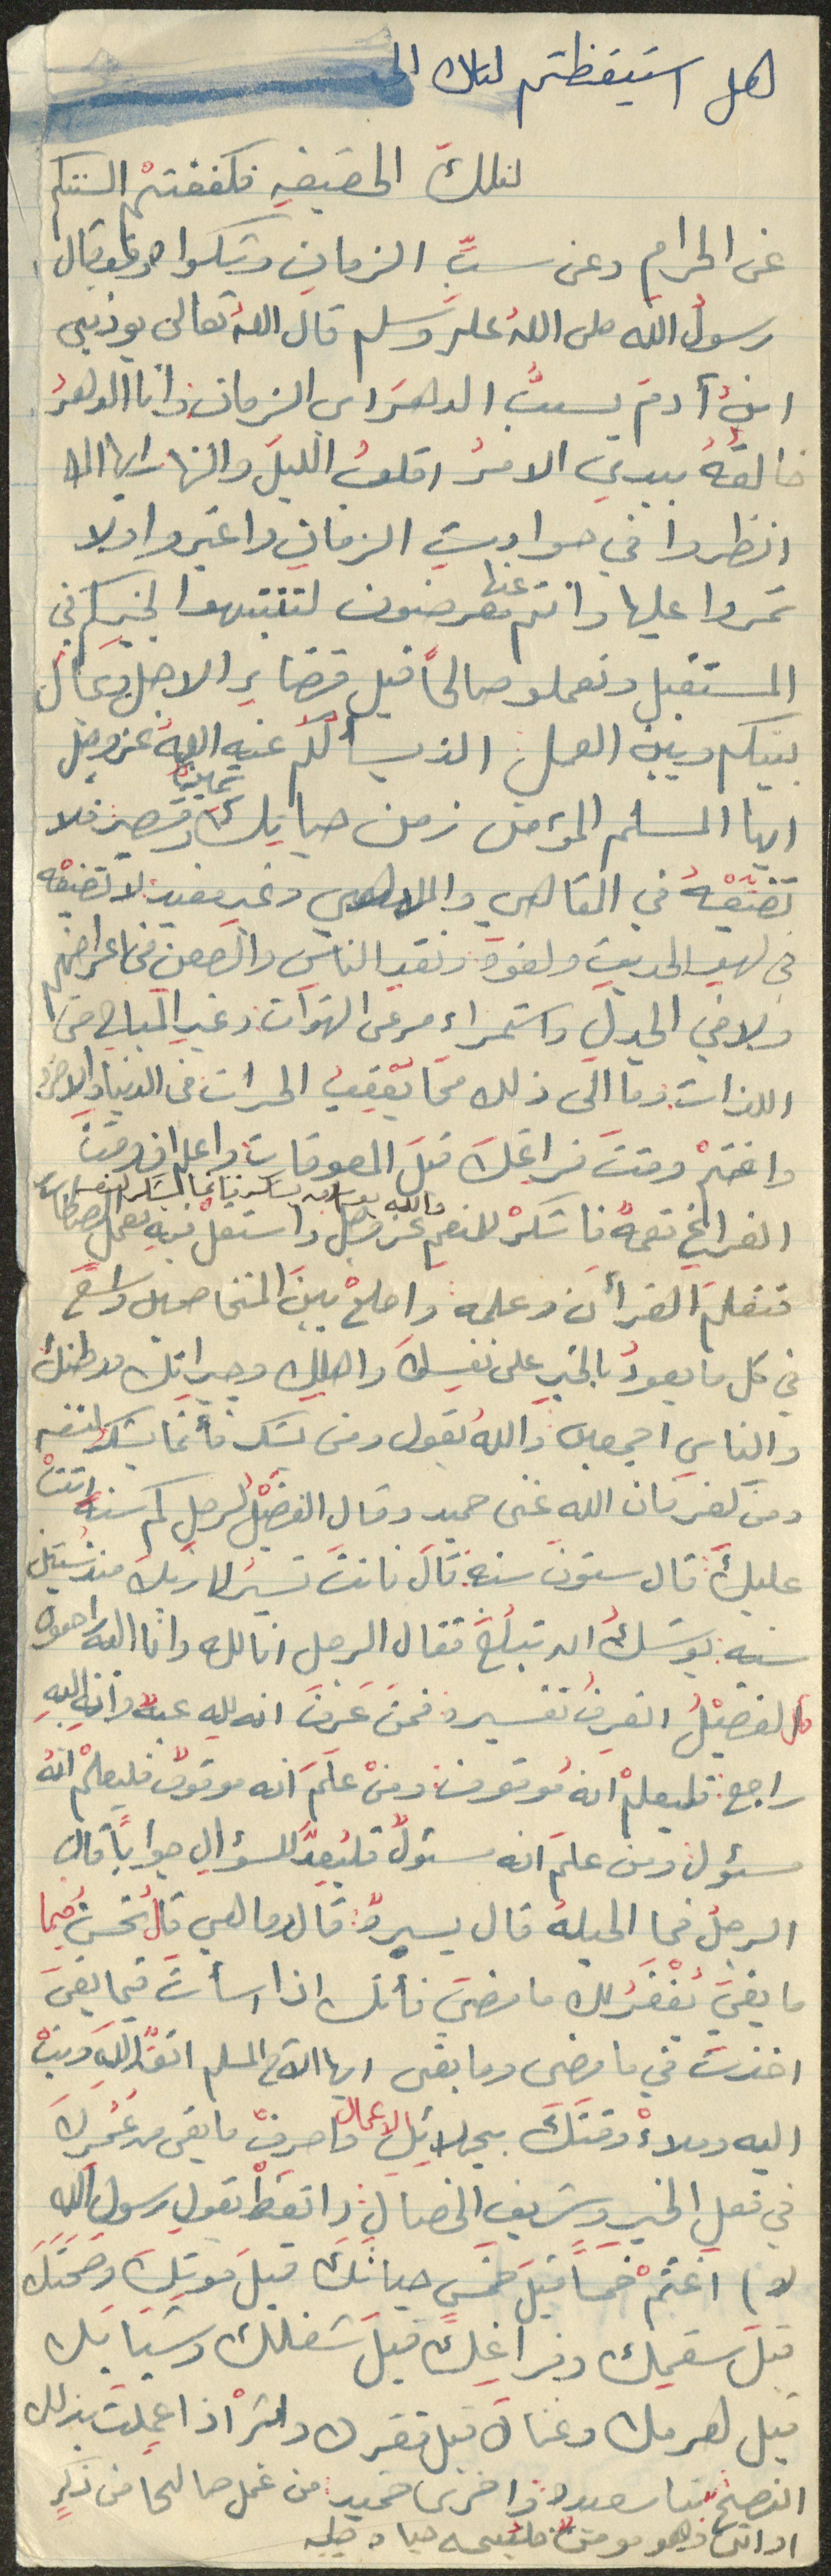 هل استيقظتم لتلك الى
لتلك الحقيقه فكففتم السنتكم
عن الحرام وعن سبِّ الزمان وتكوا فقال
رسولُ الله صلى اللهُ عليه وسلم قالَ اللهُ تعالى يوذيني
ابنُ آدمَ يسبُّ الدهرَ اي الزمان وانا الدهرُ
خالقُهُ بيدي الامرُ اقلبُ الليلَ والنهار ايها
انظروا في حوادثِ الزمانِ واعتبروا ولا
تمروا عليها وانتم عنها معرضون لتنتبهوا لخيركم في
المستقبل وتعملو صالحاً قبل قضاءِ الاجل وحال
بينكم وبين العمل الذي يسألكم عنه اللهُ عز وجل
ايها المسلم المؤمن زمن حياتِك ثمين وقصير فلا
تضيّعْهُ في المقاهي والملاهي وغير مفيد لا تضيعْه
في لهو الحديث ولغوهِ ونقدِ الناس والطعن في اعراضهم
ولا في الجدلِ واستمراء مرعى الشهوات وغير المباح من
اللذات وما الى ذلك مما يعْقِبُ الحسرات في الدنيا والاخره
واغتنمْ وقتَ فراغِكَ قبلَ المعوقات واعلم ان وقتَ
الفراغِ نعمةٌ فاشكرْ للمنعمِ عز وجل واستعملْ فيه بعمل الصالحات
والله يقول ومن يشكر فانما يشكر لنفسه
فتعلمَ القرأنَ وعلمه واصلحْ بينَ المتخاصمين واسعَ
في كل ما يعودُ بالخيرِ على نفسِكَ واهلِك وجيرانِك ووطنِكَ
والناسِ اجمعين واللهُ يقول ومن يشكر فأنما يشكر لنفسه
ومن كفر فان الله غنى حميد وقال الفضيْلُ لرجلٍ كم سنةً اتتْ
عليكَ قال ستونَ سنه قالَ فانتَ تسيرُ الى ربِكَ منذُ ستين
سنه يوشكُ ان تبلغَ فقال الرجل انا لله وانا اليه راجعون
قال الفضيْلُ اتعرفُ تفسيره فمن عَرفَ انه للهِ عبدٌ وانه اليهِ
راجع فليعلمْ انه موقوف ومنْ علمَ انه موقوفٌ فليعلمْ انهُ
مسئول ومن علمَ انه مسئولٌ فليُعِدَّ للسؤالِ جواباً قال
الرجلُ فما الحيلةُ قال يسيرةٌ قالَ وما هي قالَ تُحسنُ فيما
ما بقيَ يُغْفَرُ لك ما مضى فأنك اذا اسأتَ فيما بقى
اخذتَ في ما مضى وما بقى ايها الاخ المسلم اتقِ اللهَ وتبْ
اليه وملاءْ وقتَكَ بجلائِل الاعمال واصرفْ ما بقى من عُمرِكَ
في فعلِ الخير وشريف الخصالِ واتعظْ بقولِ رسولِ الله
اغتنمْ خمساً قبلَ خمسٍ حياتَكَ قبلَ موتِكَ وصحتَكَ
قبلَ سقمِك وفراغِكَ قبلَ شغلِك وشبابَك
قبل هرمك وغناكَ قبل فقرك اذا عملتَ بذلك
النصحِ سعيده واخرى حميده من عمل صالحاً من ذكرٍ
او انثى وهو مومنٌ فلنُحيينه حياه طيبه